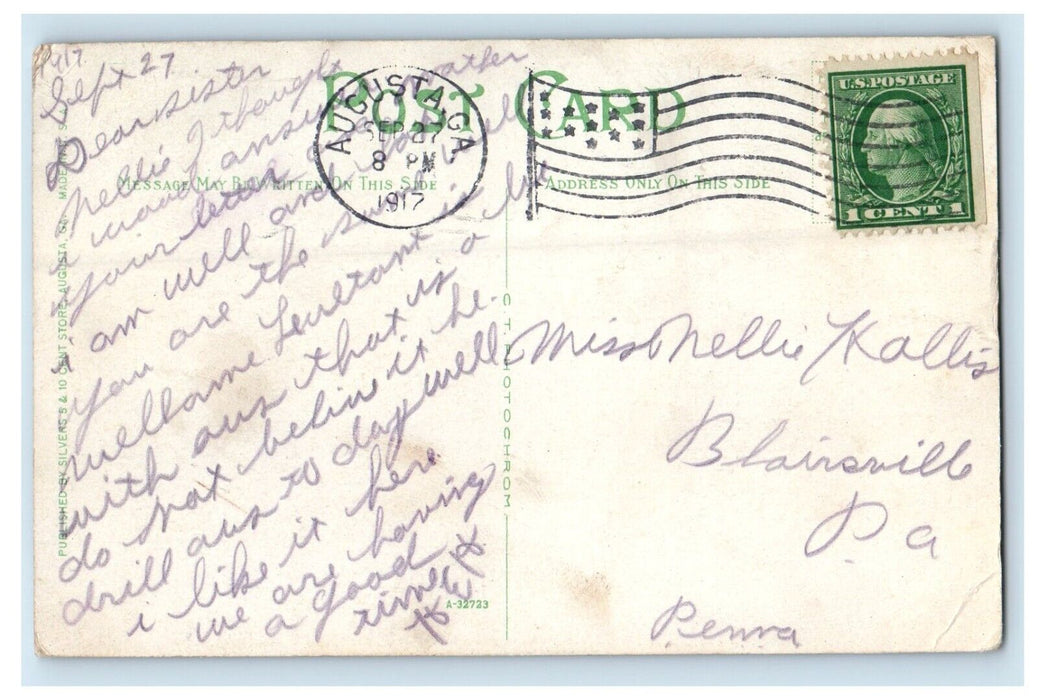 1917
Sept 27
Dear sister
nellie I thought
i wood ansur
your letter
i am well and
you are the
with aus that is a
do not belive it he
drill aus to day well
i like it here
we are having
a good
time
POST CARD
MESSAGE MAY BE WRITTEN ON THIS SIDE
ADDRESS ONLY ON THIS SIDE
AUGUSTA, GA.
SEP 27
8 PM
1917
U.S. POSTAGE
1 CENT 1
Miss Nellie Kallis
Blairsville
Pa
Penna
PUBLISHED BY SILVERS 5 & 10 CENT STORE, AUGUSTA, GA.
C. T. PHOTOCHROM
A-32723